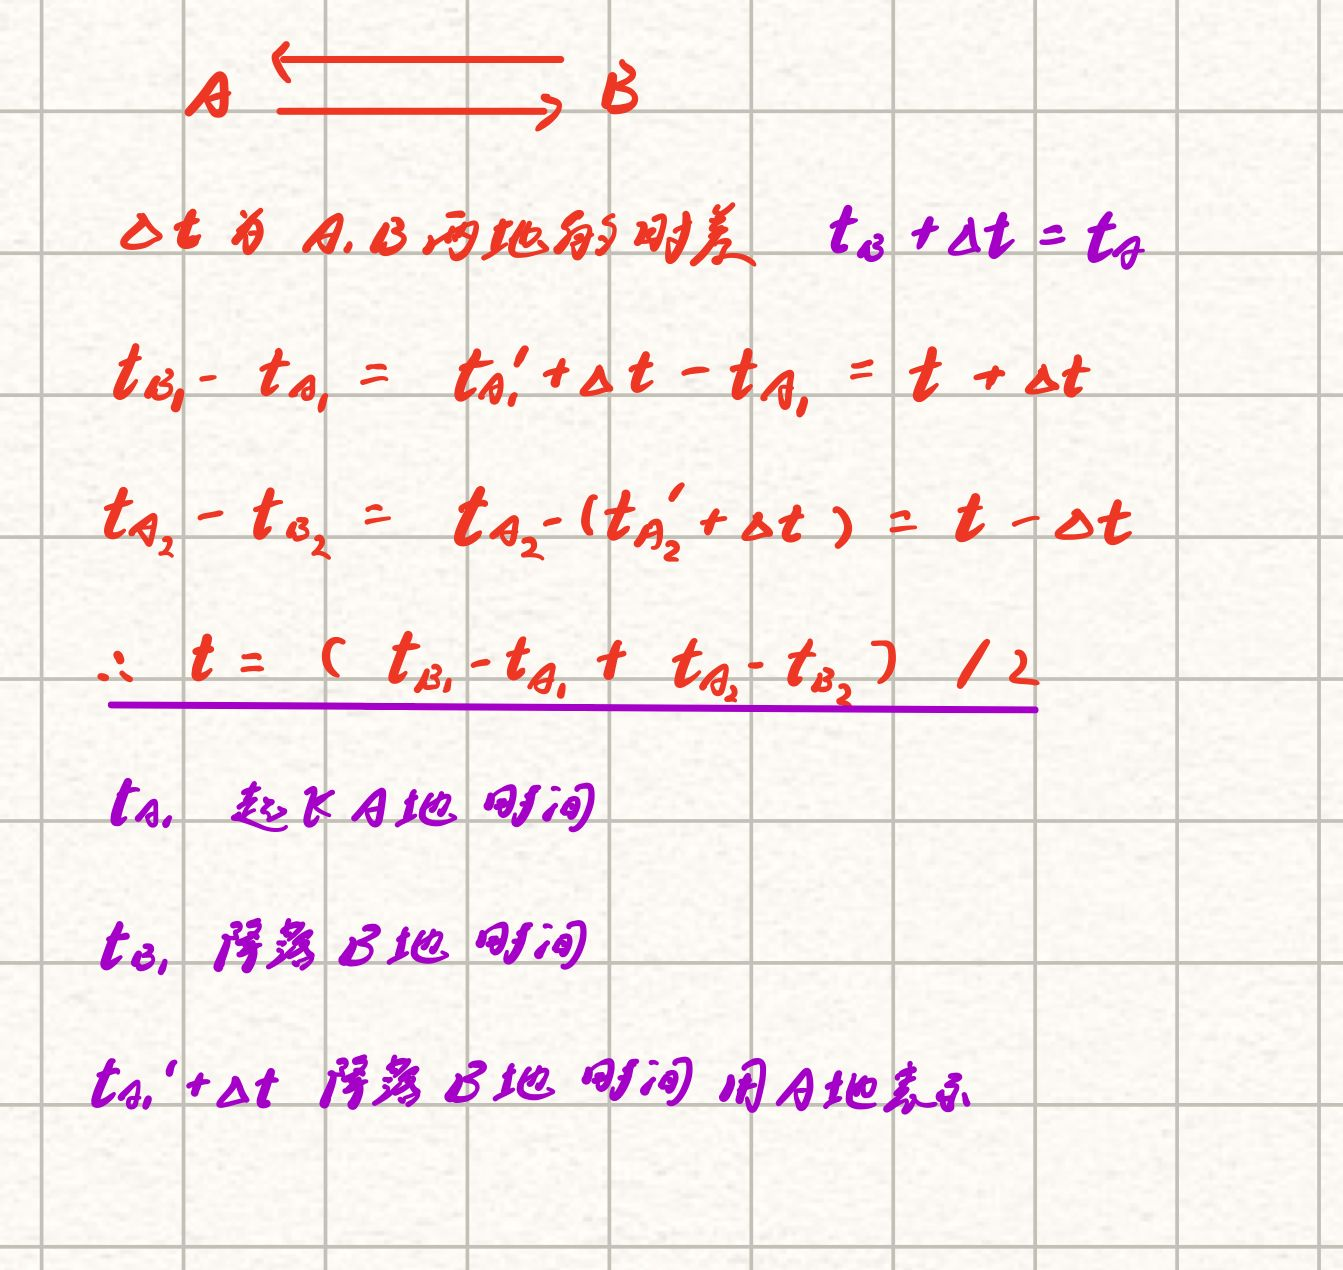 A B
Δt 为 A.B 两地的时差 t_B + Δt = t_A
t_B₁ - t_A₁ = t_A₁' + Δt - t_A₁ = t + Δt
t_A₂ - t_B₂ = t_A₂ - (t_A₂' + Δt) = t - Δt
∴ t = ( t_B₁ - t_A₁ + t_A₂ - t_B₂ ) / 2
t_A₁ 起飞 A地 时间
t_B₁ 降落 B地 时间
t_A₁' + Δt 降落 B地 时间 用A地表示